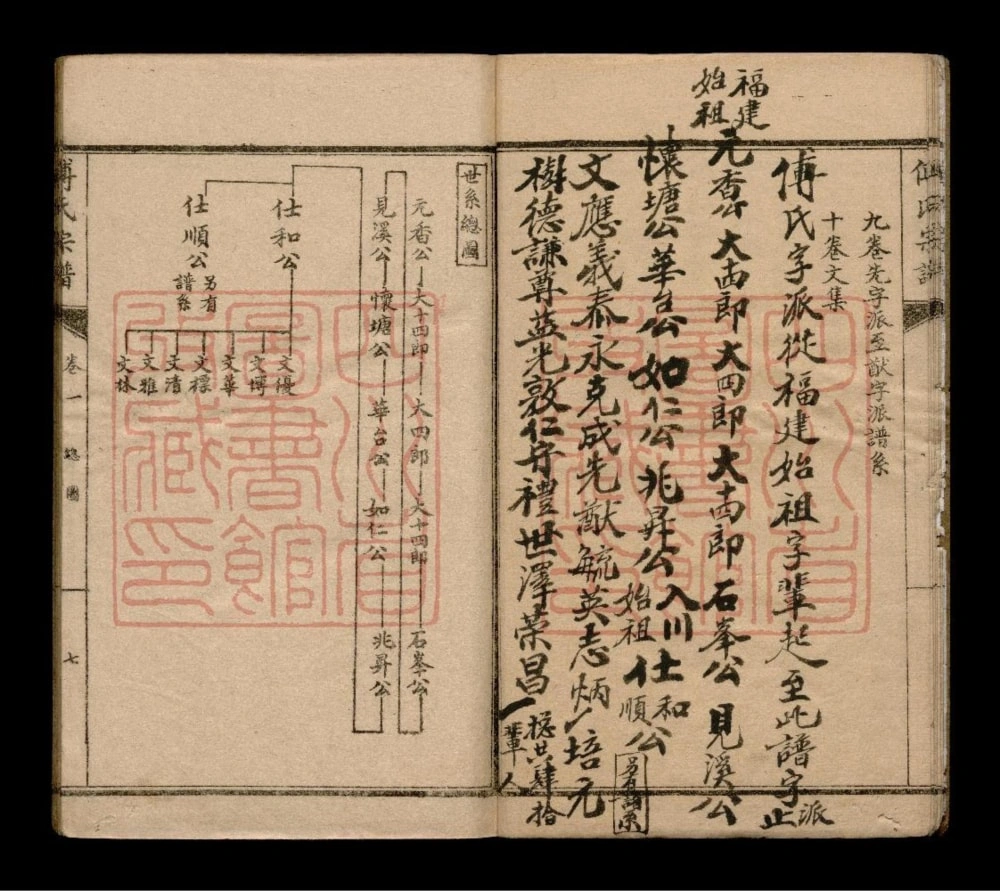 九卷先字派至猷字派譜系
十卷文集
傅氏字派從福建始祖字輩起至此譜字派止
福建
始祖
元香公大四郎大四郎大四郎石峯公見溪公
懷塘公華台公如仁公兆昇公入川始祖仕和順公另有譜系
文應義泰永克成先猷毓英志炳一培元
樹德謙尊益光敦仁守禮世澤荣昌
總共肆拾一輩人
傅氏宗譜
世系總圖
元香公
大十四郎
大四郎
大十四郎
石峯公
見溪公
懷塘公
華台公
如仁公
兆昇公
仕和公
仕順公
另有譜系
文優
文博
文華
文標
文清
文雅
文林
傅氏宗譜
卷一
總圖
七
四川省圖書館藏書印